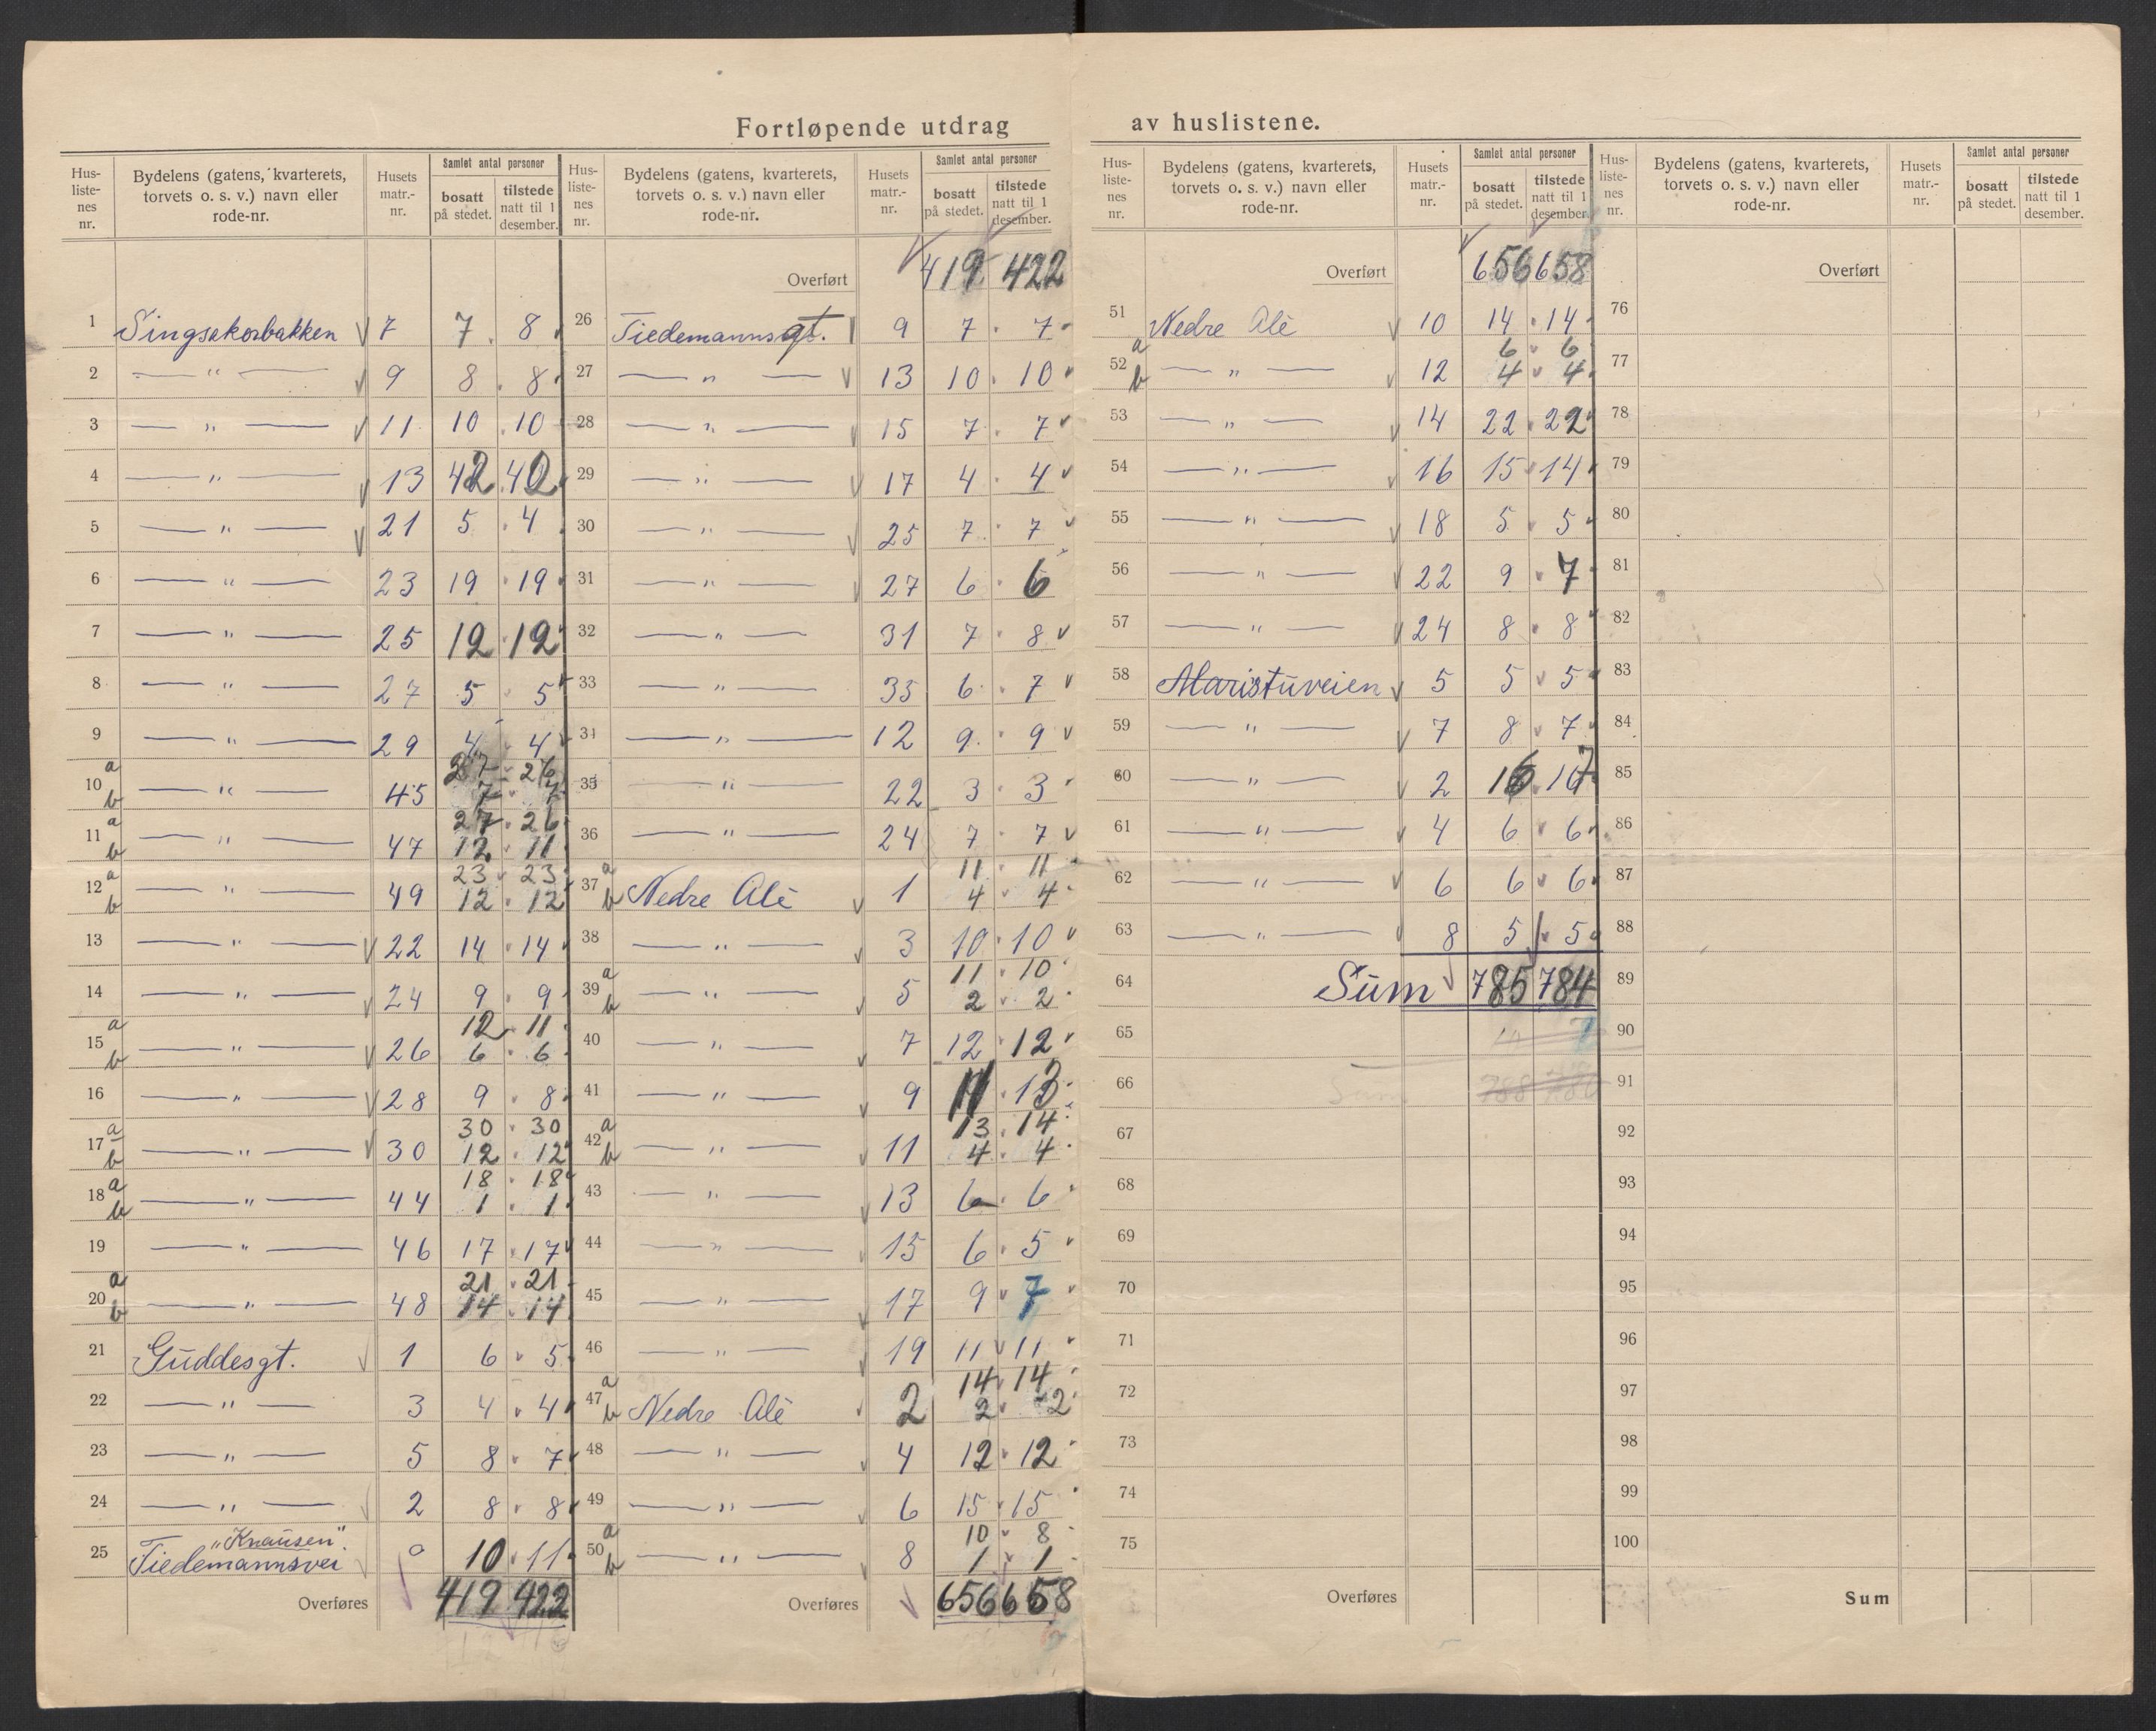 Fortløpende utdrag av huslistene.
Hus-listenes nr. | Bydelens (gatens, kvarterets, torvets o. s. v.) navn eller rode-nr. | Husets matr.-nr. | Samlet antal personer bosatt på stedet. | tilstede natt til 1 desember.
1 Singsakerbakken 7 7 8
2 — " — 9 8 8
3 — " — 11 10 10
4 — " — 13 42 42
5 — " — 21 5 4
6 — " — 23 19 19
7 — " — 25 12 12
8 — " — 27 5 5
9 — " — 29 4 4
10 a 27 26
b — " — 45 7 7
11 a 27 26
b — " — 47 12 11
12 a 23 23
b — " — 49 12 12
13 — " — 22 14 14
14 — " — 24 9 9
15 a 12 11
b — " — 26 6 6
16 — " — 28 9 8
17 a 30 30
b — " — 30 12 12
18 a 18 18
b — " — 44 1 1
19 — " — 46 17 17
20 a 21 21
b — " — 48 14 14
21 Guddesgt. 1 6 5
22 — " — 3 4 4
23 — " — 5 8 7
24 — " — 2 8 8
25 "Knausen". Tiedemannsvei 10 11
Overføres 419 422
Hus-listenes nr. | Bydelens (gatens, kvarterets, torvets o. s. v.) navn eller rode-nr. | Husets matr.-nr. | Samlet antal personer bosatt på stedet. | tilstede natt til 1 desember.
Overført 419 422
26 Tiedemannsgt. 9 7 7
27 — " — 13 10 10
28 — " — 15 7 7
29 — " — 17 4 4
30 — " — 25 7 7
31 — " — 27 6 6
32 — " — 31 7 8
33 — " — 35 6 7
34 — " — 12 9 9
35 — " — 22 3 3
36 — " — 24 7 7
37 a 11 11
b Nedre Alè 1 4 4
38 — " — 3 10 10
39 a 11 10
b — " — 5 2 2
40 — " — 7 12 12
41 — " — 9 11 13
42 a 13 14
b — " — 11 4 4
43 — " — 13 6 6
44 — " — 15 6 5
45 — " — 17 9 7
46 — " — 19 11 11
47 a 14 14
b Nedre Alè 2 2 2
48 — " — 4 12 12
49 — " — 6 15 15
50 a 10 8
b — " — 8 1 1
Overføres 656 658
Hus-listenes nr. | Bydelens (gatens, kvarterets, torvets o. s. v.) navn eller rode-nr. | Husets matr.-nr. | Samlet antal personer bosatt på stedet. | tilstede natt til 1 desember.
Overført 656 658
51 Nedre Alè 10 14 14
52 a 6 6
b — " — 12 4 4
53 — " — 14 22 22
54 — " — 16 15 14
55 — " — 18 5 5
56 — " — 22 9 7
57 — " — 24 8 8
58 Maristuveien 5 5 5
59 — " — 7 8 7
60 — " — 2 16 17
61 — " — 4 6 6
62 — " — 6 6 6
63 — " — 8 5 5
64 Sum 785 784
65
66 Sum 788 786
67
68
69
70
71
72
73
74
75
Overføres
Hus-listenes nr. | Bydelens (gatens, kvarterets, torvets o. s. v.) navn eller rode-nr. | Husets matr.-nr. | Samlet antal personer bosatt på stedet. | tilstede natt til 1 desember.
Overført
76
77
78
79
80
81
82
83
84
85
86
87
88
89
90
91
92
93
94
95
96
97
98
99
100
Sum